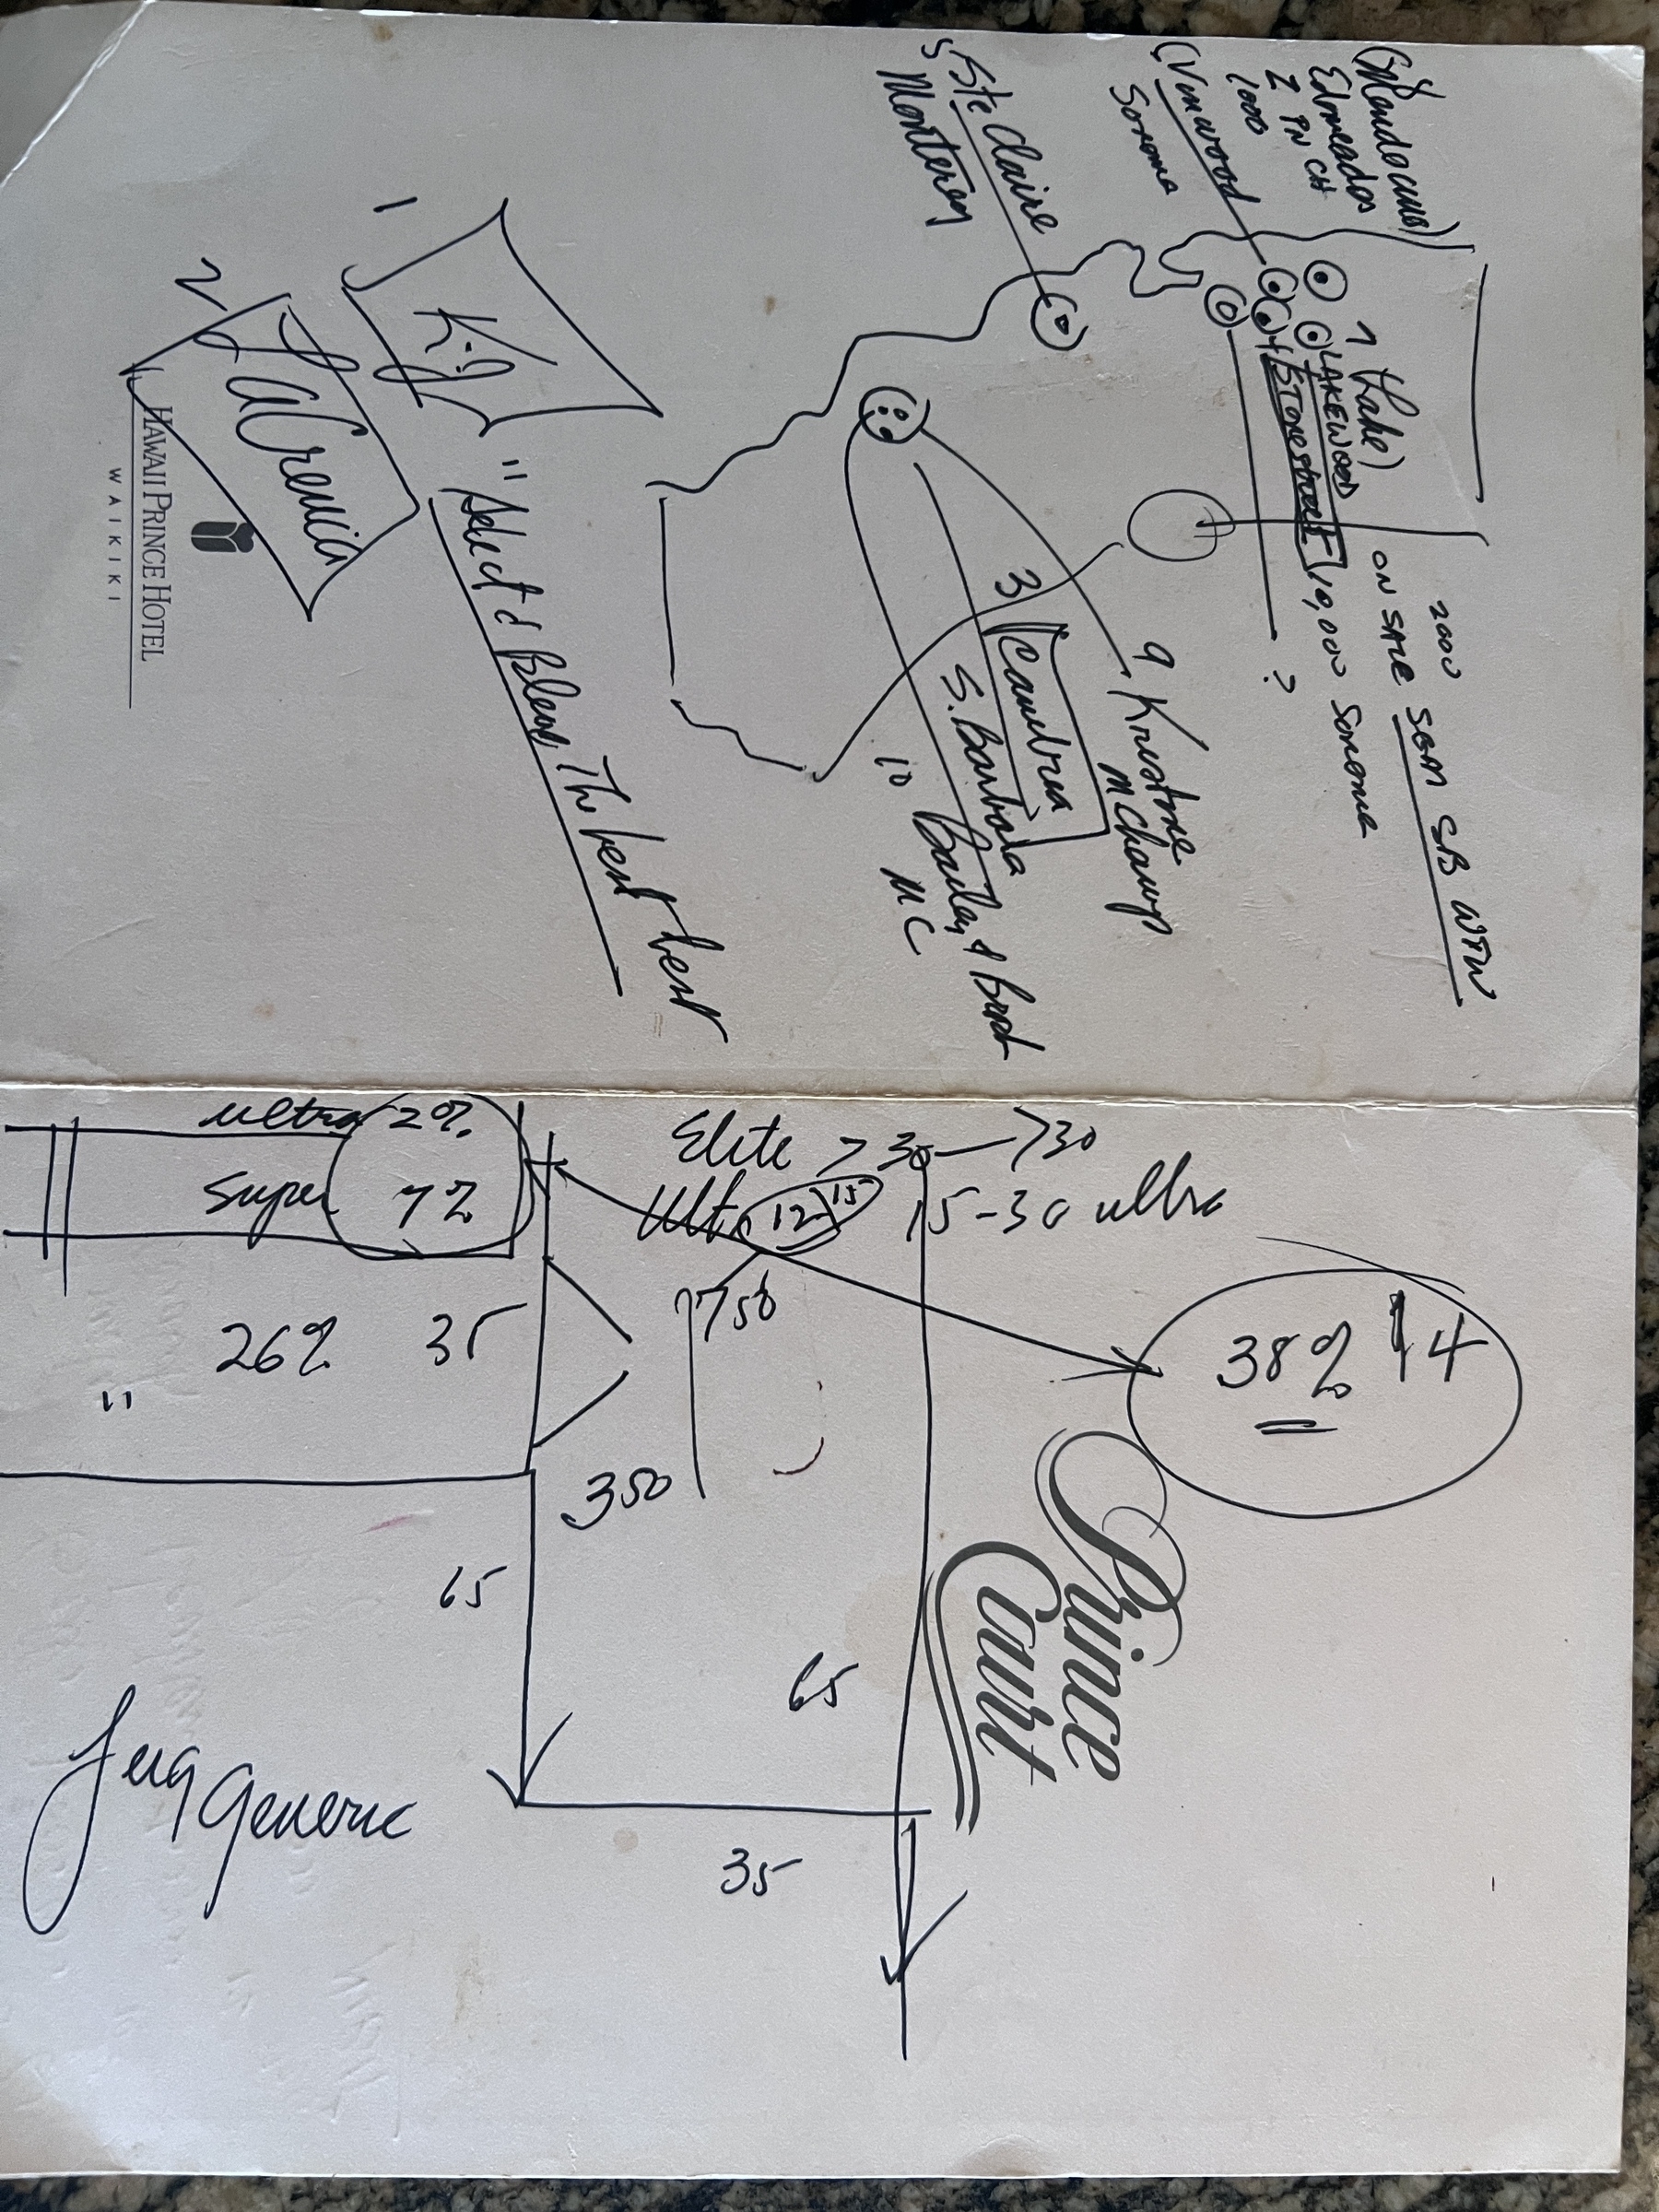 (8 Mendocino)
Edmeades
Z PN CH
1000
(Vinwood
Sonoma
5 Ste Claire
Monterey
7 Lake)
LAKEWOOD
2000
ON SALE SEM SB WTW
4 Stonestreet 10,000 Sonoma
?
9 Kristone
M Champ
3 Cambria
S. Barbara
10 Barley & Bert
MC
1 K-J
2 La Crema
"Select & Blend The best best
HAWAII PRINCE HOTEL
WAIKIKI
Elite >30 — >30
Ultra 12 15 15-30 ultra
ultra 2%
super 7%
750
26% 35
"
38% 14
350
65
65
35
Jug Generic
Prince
Court